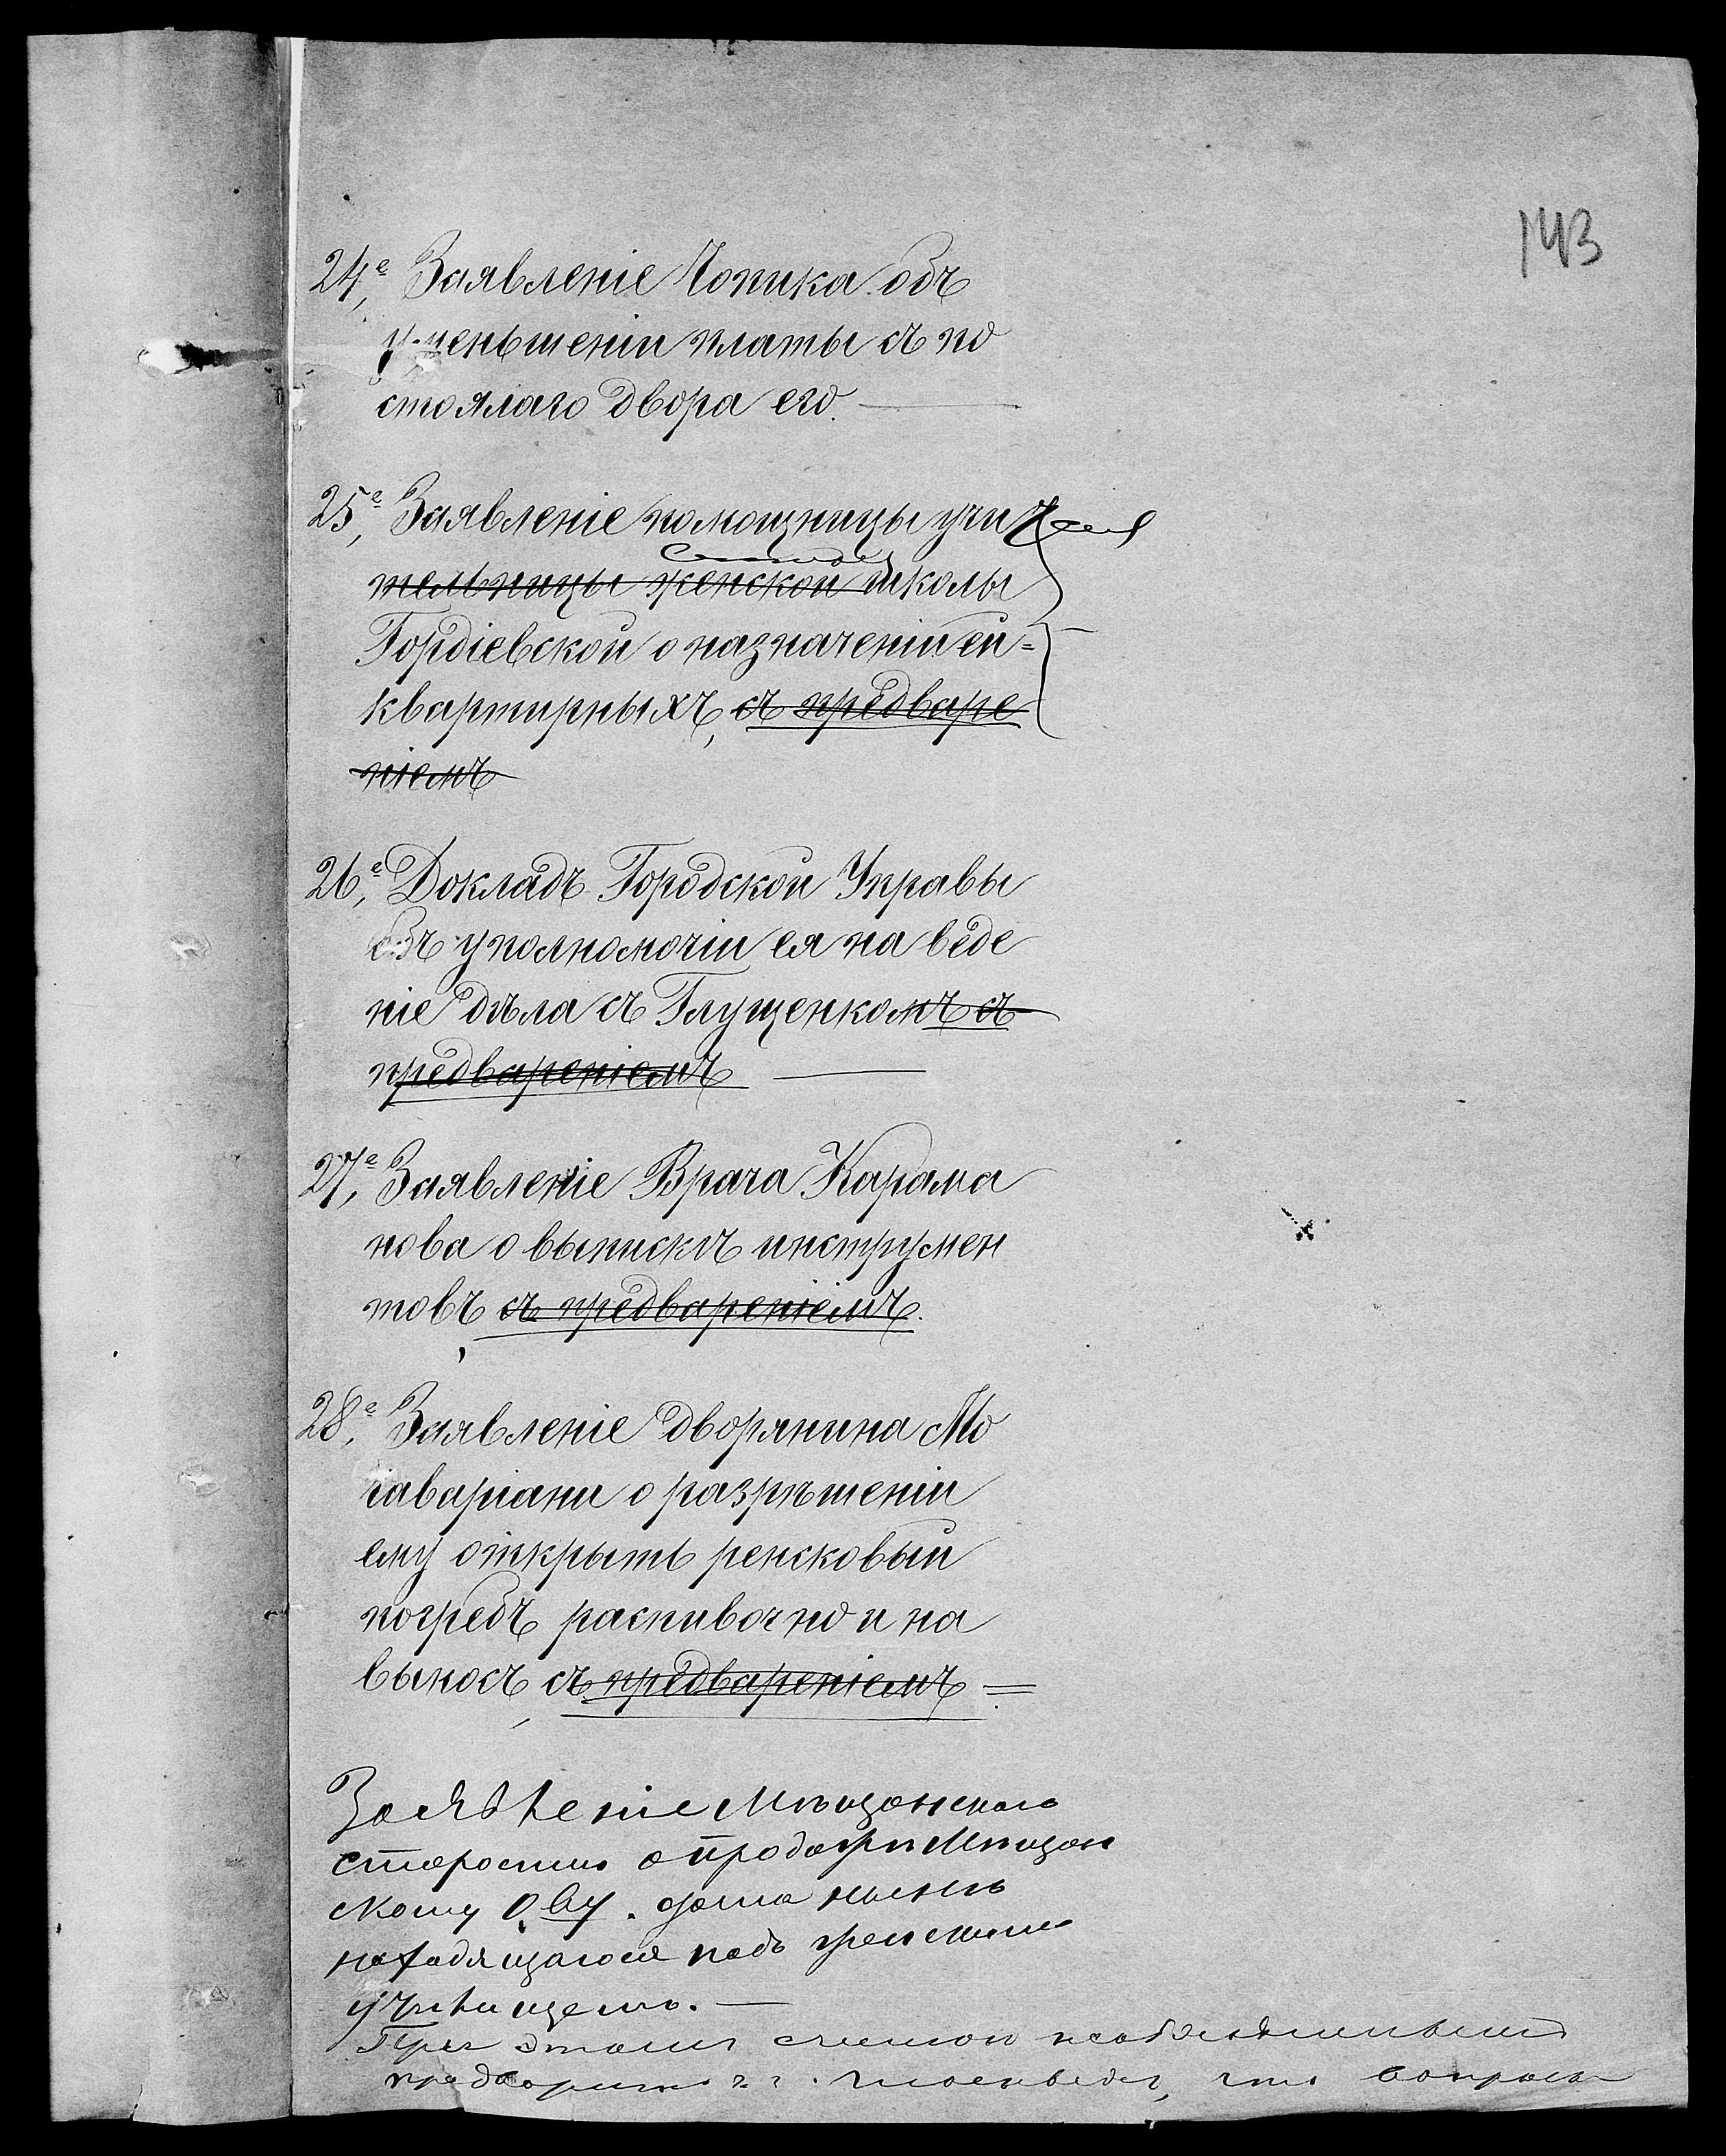 143
24е, Заявленіе Чопика объ
уменьшеніи платы съ по
стоялаго двора его.
25е, Заявленіе помощницы учи
тельницы женской школы
Гордіевской о назначеніи ей
квартирныхъ, съ предваре
ніемъ
26е, Докладъ Городской Управы
объ уполномочіи ея на веде
ніе дѣла съ Глущенкомъ съ
предвареніемъ
27е, Заявленіе Врача Карама
нова о выпискѣ инструмен
товъ съ предвареніемъ.
28е, Заявленіе дворянина Мо
чаваріани о разрѣшеніи
ему открыть ренсковый
погребъ распивочно и на
выносъ, съ предвареніемъ =
Заявленіе Мѣщанскаго
старосты о продажѣ Мѣщан
скому О-ву. дома нынѣ
находящагося подъ женскимъ
училищемъ. —
При этомъ считаю
предварить г.г. что вопросы